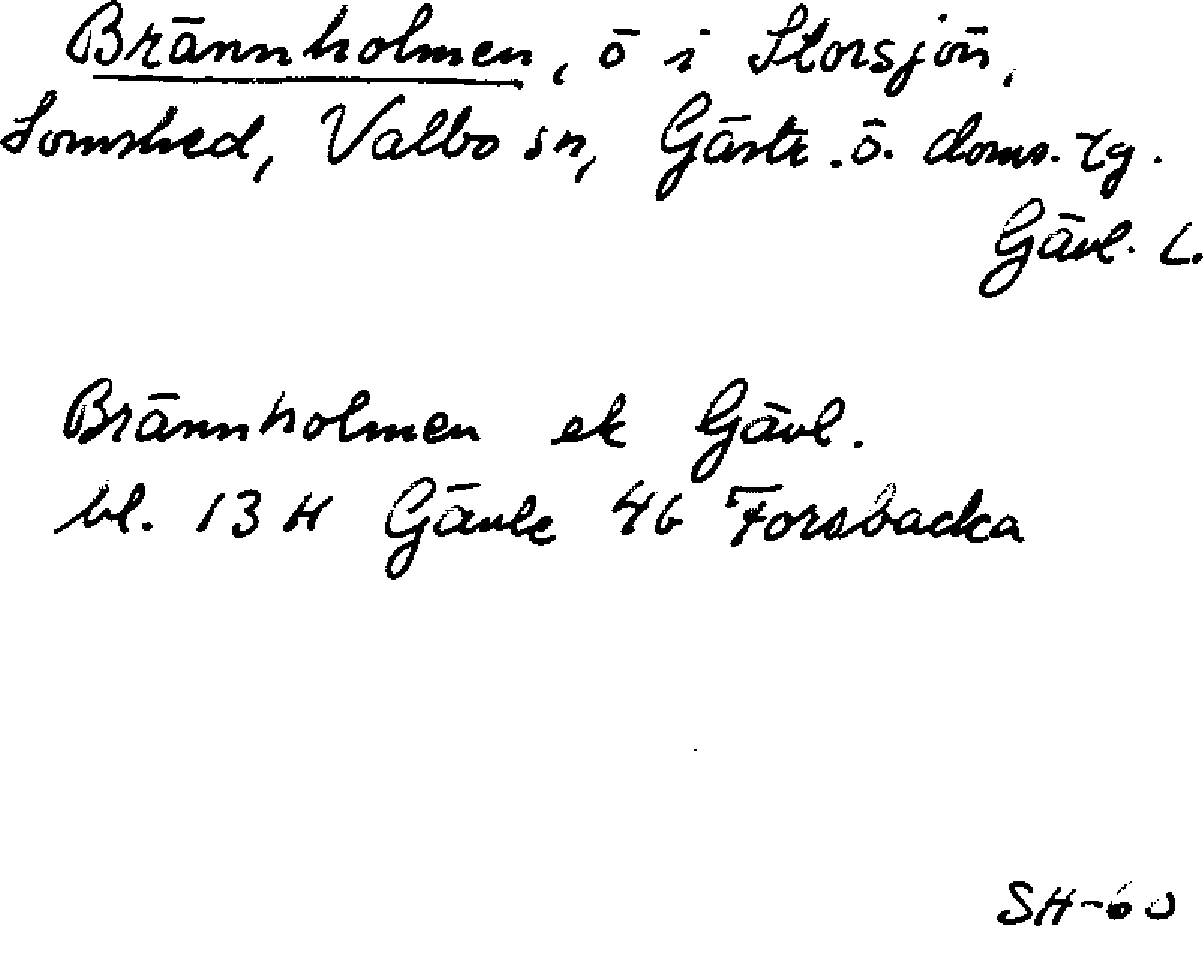 Brännholmen, ö i Storsjön,
Lomshed, Valbo sn, Gästr. ö. doms. tg.
Gävl. L.
Brännholmen ek Gävl.
bl. 13 H Gävle 4b Forsbacka
SH-60